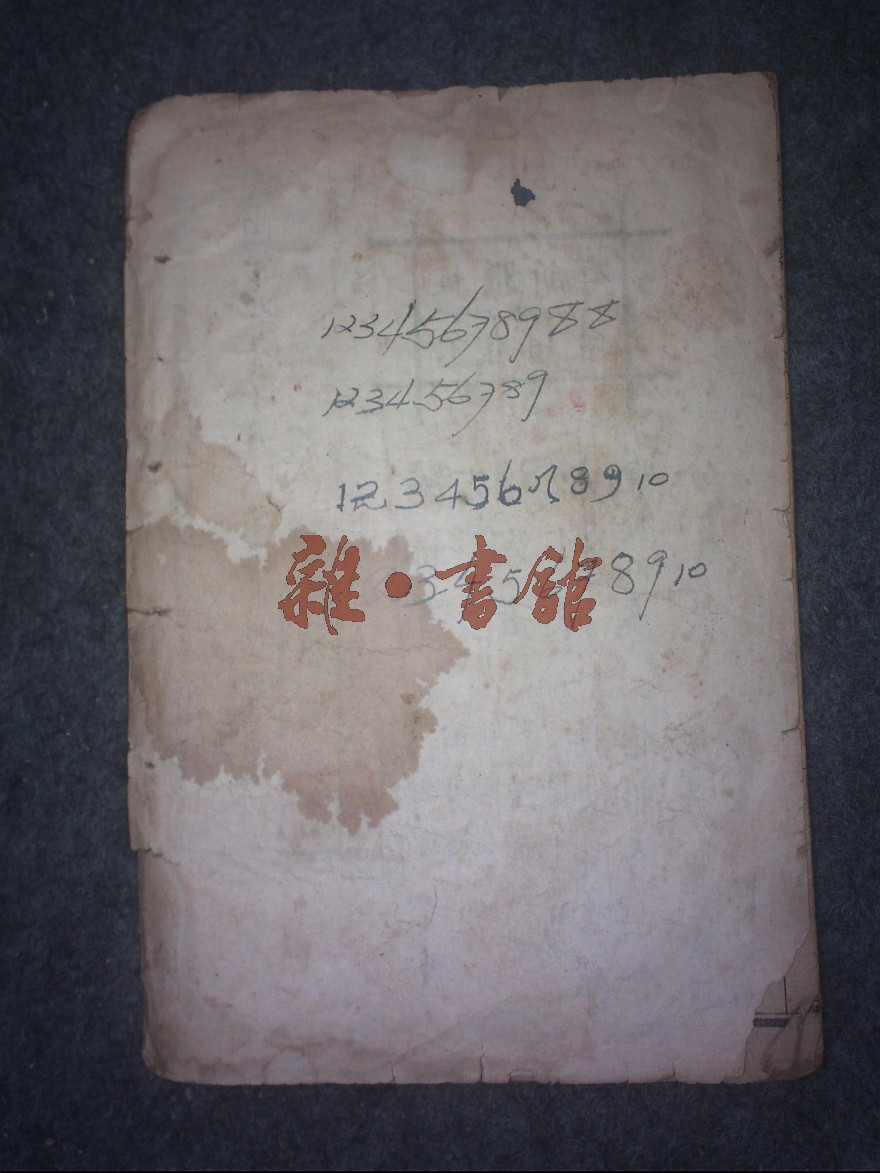 1234567898 8
123456789
12345678910
雜·書館
345 8910